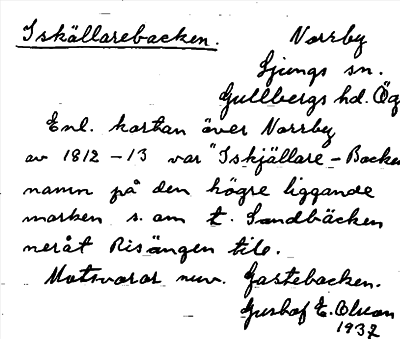 Iskällarebacken. Norrby
Ljungs sn.
Gullbergs hd. Ög
Enl. kartan över Norrby
av 1812-13 var "Iskjällare-Backen
namn på den högre liggande
marken s. om t. Sandbäcken
neråt Risängen till.
Motsvarar nuv. Gastebacken.
Gustaf E. Olson
1937